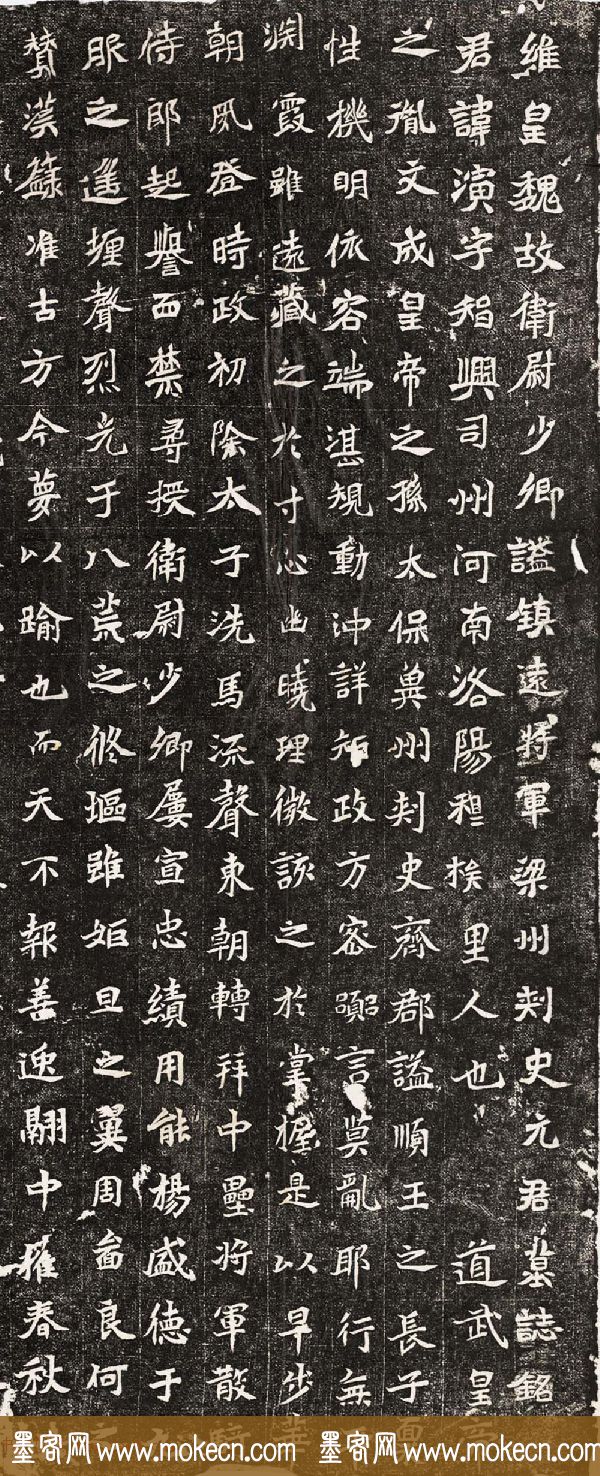 維皇魏故衛尉少卿謚鎮遠將軍梁州刾史元君墓誌銘
君諱演字智興司州河南洛陽穆族里人也道武皇
之胤文成皇帝之孫太保兾州刾史齊郡謚順王之長子
性機明依容端湛規動沖詳知政方密 言莫亂耶行無
渕霞雖遠藏之於寸心幽曉理微該之於掌握是以早步
朝夙登時政初除太子洗馬流聲東朝轉拜中壘將軍散
侍郎起譽西禁尋授衛尉少卿屢宣忠績用能楊盛德于
服之遥堙聲烈光于八荒之脩塸雖姬旦之翼周啚良何
賛漢籙准古方今蔑以踰也而天不報善迎翮中摧春秋
墨客网 www.mokecn.com 墨客网 www.mokecn.com